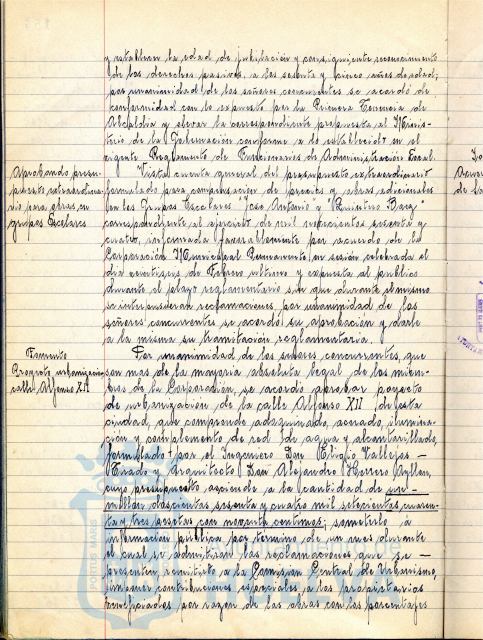 y establecen la edad de jubilación y consiguiente reconocimiento
de los derechos pasivos, a los sesenta y cinco años de edad;
por unanimidad de los señores concurrentes se acordó de
conformidad con lo expuesto por la Primera Tenencia de
Alcaldía y elevar la correspondiente propuesta al Minis-
terio de la Gobernación conforme a lo establecido en el
vigente Reglamento de Funcionarios de Administración Local.
Aprobando presu-
puesto extraordina-
rio para obras en
grupos Escolares
Vista la cuenta general del presupuesto extraordinario
formulado para compensación de precios y obras adicionales
en los Grupos Escolares "José Antonio" y "Romero Barz"
correspondiente al ejercicio de mil novecientos sesenta y
cuatro, informada favorablemente por acuerdo de la
Corporación Municipal Permanente en sesión celebrada el
día veintiseis de Febrero último y expuesta al público
durante el plazo reglamentario sin que durante el mismo
se interpusieran reclamaciones, por unanimidad de los
señores concurrentes se acordó su aprobación y darle
a la misma su tramitación reglamentaria.
Fomento
Proyecto urbanización
calle Alfonso XII
Por unanimidad de los señores concurrentes, que
son mas de la mayoría absoluta legal de los miem-
bros de la Corporación, se acordó aprobar proyecto
de urbanización de la calle Alfonso XII, de esta
ciudad, que comprende adoquinado, acerado, ilumina-
ción y complemento de red de agua y alcantarillado,
formulado por el Ingeniero Don Eligio Vallejos
Tirado y Arquitecto Don Alejandro Herrero Ayllón,
cuyo presupuesto asciende a la cantidad de un
millón doscientas sesenta y cuatro mil setecientas cuaren-
ta y tres pesetas con noventa centimos; someterlo a
información pública por término de un mes durante
el cual se admitiran las reclamaciones que se
presenten, remitirlo a la Comision Central de Urbanismo,
imponer contribuciones especiales a los propietarios
beneficiados por razón de las obras con los porcentajes
PORTUS MARIS